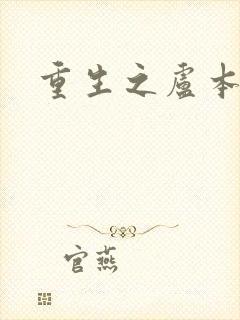 重生之盧本
官燕